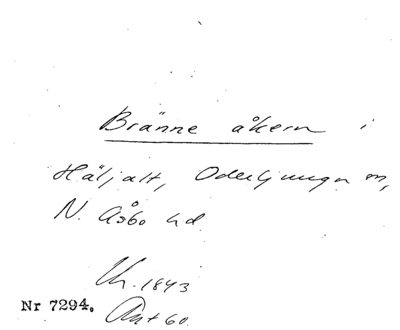 Bränne åkern i
Häljalt, Oderljunga sn,
N. Åsbo hd.
Uh. 1843
Nr 7294. Ant 60.